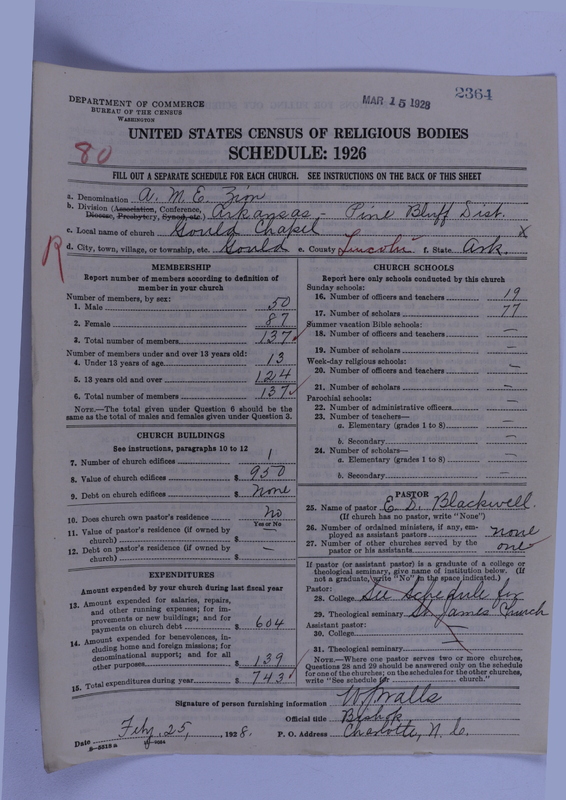 2364
MAR 15 1928
DEPARTMENT OF COMMERCE
BUREAU OF THE CENSUS
WASHINGTON
80
UNITED STATES CENSUS OF RELIGIOUS BODIES
SCHEDULE: 1926
FILL OUT A SEPARATE SCHEDULE FOR EACH CHURCH. SEE INSTRUCTIONS ON THE BACK OF THIS SHEET
a. Denomination A. M. E. Zion
b. Division (Association, Conference, Arkansas - Pine Bluff Dist.
Diocese, Presbytery, Synod, etc.)
c. Local name of church Gould Chapel X
R
d. City, town, village, or township, etc. Gould e. County Lincoln f. State Ark.
MEMBERSHIP
Report number of members according to definition of
member in your church
Number of members, by sex:
1. Male 50
2. Female 87
3. Total number of members 137
Number of members under and over 13 years old:
4. Under 13 years of age 13
5. 13 years old and over 124
6. Total number of members 137
NOTE.—The total given under Question 6 should be
same as the total of males and females given under Question 3.
CHURCH BUILDINGS
See instructions, paragraphs 10 to 12
7. Number of church edifices 1
8. Value of church edifices $ 950
9. Debt on church edifices $ None
10. Does church own pastor's residence No
Yes or No
11. Value of pastor's residence (if owned by
church) $ —
12. Debt on pastor's residence (if owned by
church) $ —
EXPENDITURES
Amount expended by your church during last fiscal year
13. Amount expended for salaries, repairs,
and other running expenses; for im-
provements or new buildings; and for
payments on church debt $ 604
14. Amount expended for benevolences, in-
cluding home and foreign missions; for
denominational support; and for all
other purposes $ 139
15. Total expenditures during year $ 743
CHURCH SCHOOLS
Report here only schools conducted by this church
Sunday schools:
16. Number of officers and teachers 19
17. Number of scholars 77
Summer vacation Bible schools:
18. Number of officers and teachers —
19. Number of scholars —
Week-day religious schools:
20. Number of officers and teachers —
21. Number of scholars —
Parochial schools:
22. Number of administrative officers —
23. Number of teachers—
a. Elementary (grades 1 to 8) —
b. Secondary —
24. Number of scholars—
a. Elementary (grades 1 to 8) —
b. Secondary —
PASTOR
25. Name of pastor E. D. Blackwell.
(If church has no pastor, write "None")
26. Number of ordained ministers, if any, em-
ployed as assistant pastors none
27. Number of other churches served by the
pastor or his assistants one
If pastor (or assistant pastor) is a graduate of a college or
theological seminary, give name of institution below. (If
not a graduate, write "No" in the space indicated.)
Pastor:
28. College See schedule for
29. Theological seminary St. James Church
Assistant pastor:
30. College
31. Theological seminary
NOTE.—Where one pastor serves two or more churches,
Questions 28 and 29 should be answered only on the schedule
for one of the churches; on the schedules for the other churches,
write "See schedule for church."
Signature of person furnishing information W J Walls
Official title Bishop
Date Feby. 25, , 1928. P. O. Address Charlotte, N. C.